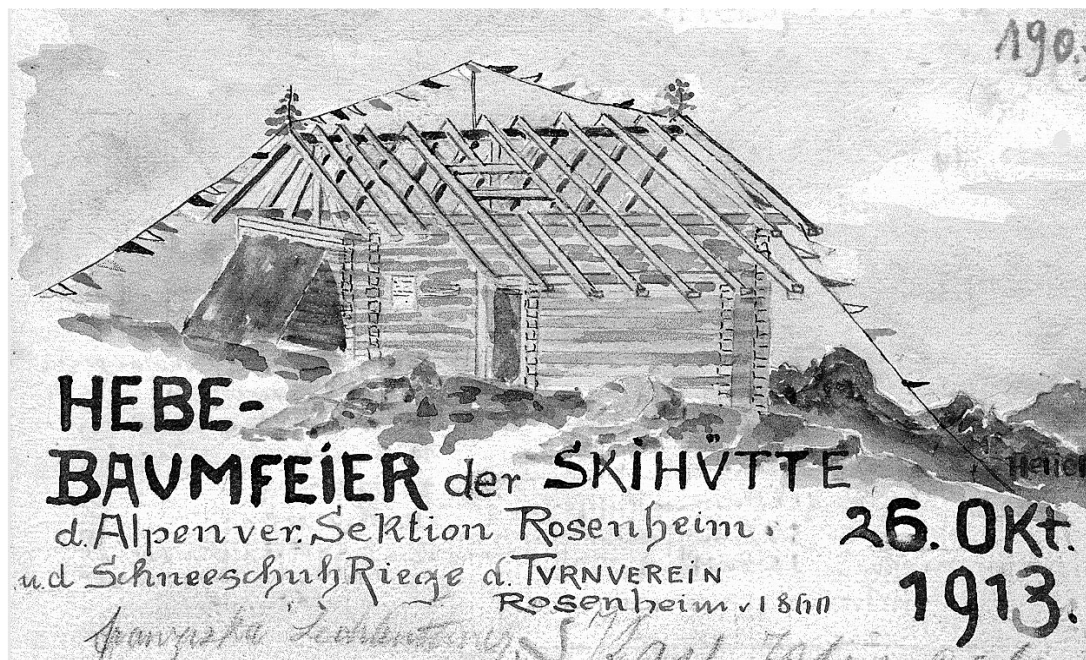 190.
HEBE-
BAUMFEIER der SKIHÜTTE
d. Alpenver. Sektion Rosenheim.
26. Okt.
u. d Schneeschuh Riege d. TURNVEREIN
1913.
Rosenheim v. 1860
franziska